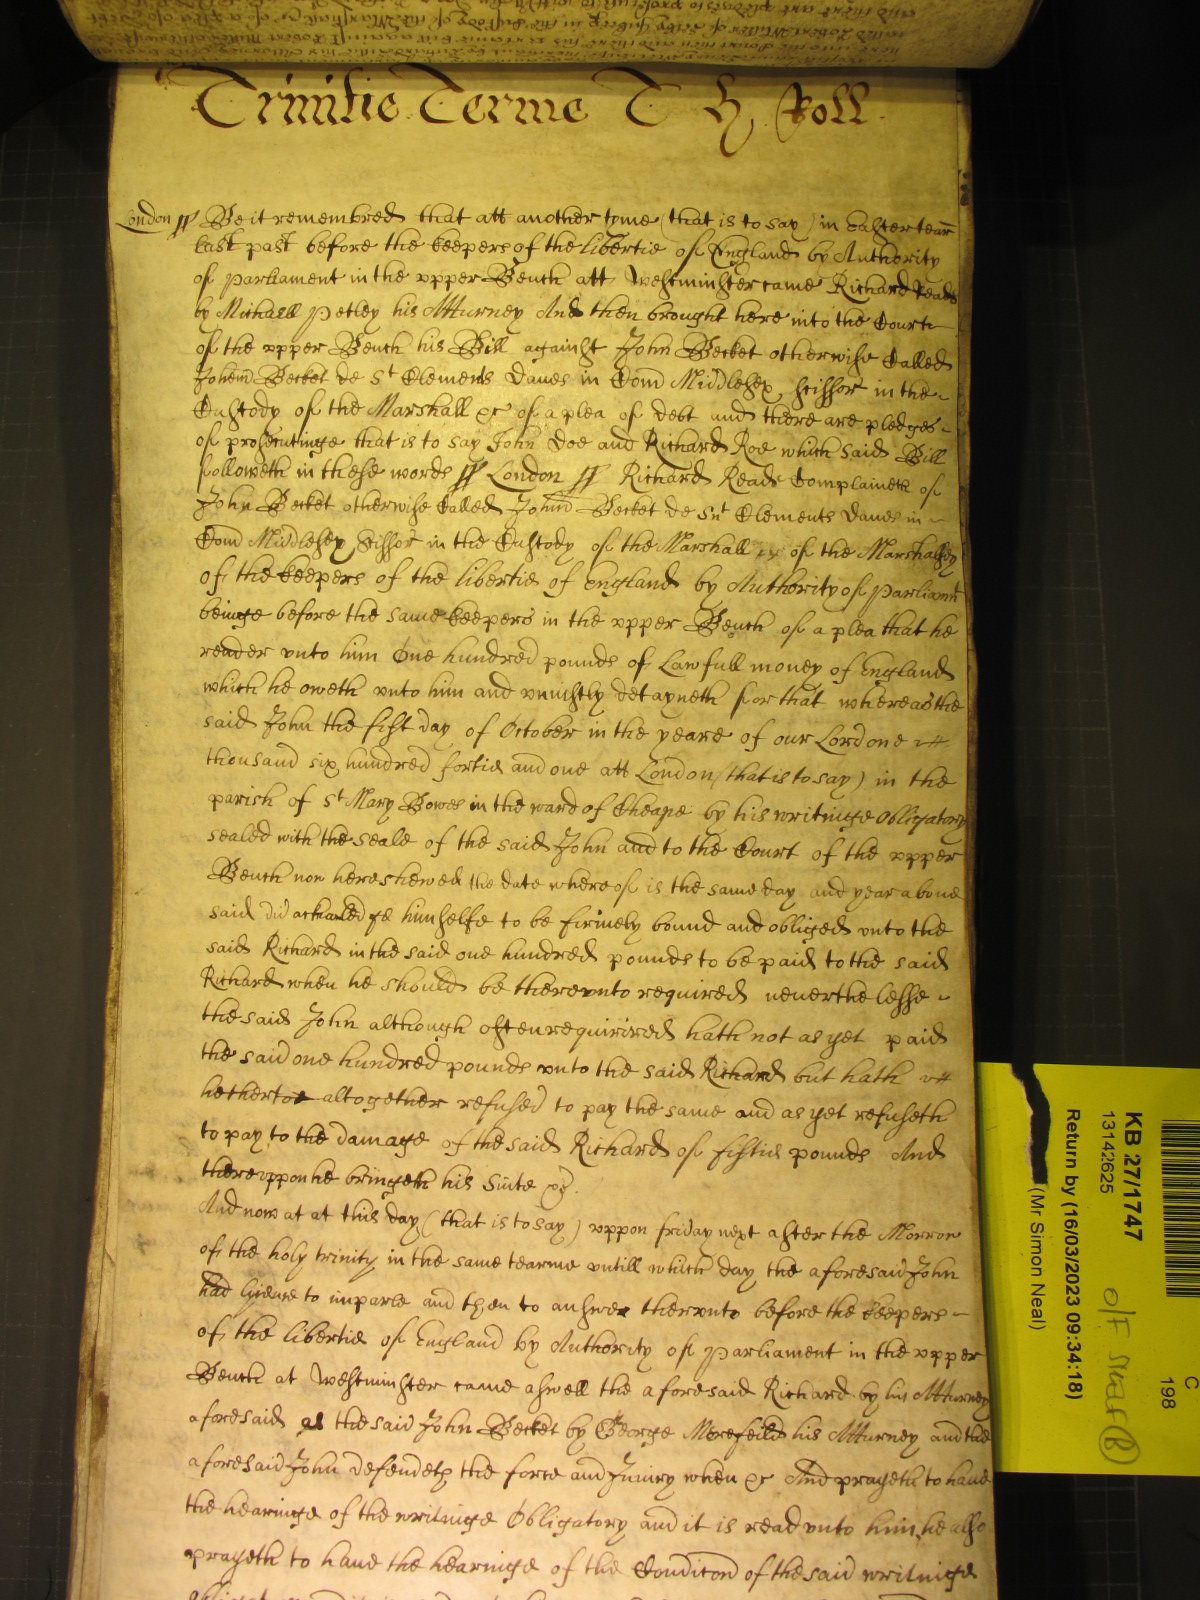 Trinitie Terme T h Roll
London ss Be it remembred that att another tyme (that is to say) in Easter tearme
last past before the keepers of the libertie of England by Authority
of Parliament in the vpper Bench att Westminster came Richard Reade
by Michaell Petley his Atturney And then brought here into the Court
of the vpper Bench his Bill against John Becket otherwise Called
Johem Becket de St Clements Danes in Com Middlesex scissor in the
Custody of the Marshall &c of a plea of debt and there are pledges
of prosecutinge that is to say John Doe and Richard Roe which said Bill
followeth in these words ss London ss Richard Reade Complaineth of
John Becket otherwise Called Johem Becket de Snt Clements Danes in
Com Middlesex Scissor in the Custody of the Marshall of the Marshalsey
of the keepers of the libertie of England by Authority of Parliamt
beinge before the same keepers in the vpper Bench of a plea that he
reader vnto him One hundred pounds of Lawfull money of England
which he oweth vnto him and vniustly detayneth for that whereas the
said John the fist day of October in the yeare of our Lord one
thousand six hundred fortie and one att London (that is to say) in the
parish of St Mary Bowes in the ward of Cheape by his writinge Obligatory
sealed with the seale of the said John and to the Court of the vpper
Bench now here shewed the date whereof is the same day and yeare aboue
said did acknowledge himselfe to be firmely bound and obliged vnto the
said Richard in the said one hundred pounds to be paid to the said
Richard when he should be therevnto required neuerthelesse
the said John although often requirired hath not as yet paid
the said one hundred pounds vnto the said Richard but hath
hethertoe altogether refused to pay the same and as yet refuseth
to pay to the damage of the said Richard of fiftie pounds And
therevppon he bringeth his Suite &c
And now at at this day (that is to say) vppon friday next after the Morrow
of the holy trinity in the same tearme vntill which day the aforesaid John
had license to imparle and then to answer thervnto before the keepers
of the libertie of England by Authority of Parliament in the vpper
Bench at Westminster came aswell the aforesaid Richard by his Atturney
aforesaid as the said John Becket by George Merefeild his Atturney and the
aforesaid John defendeth the force and Iniury when &c And prayeth to haue
the hearinge of the writinge Obligatory and it is read vnto him he also
prayeth to haue the hearinge of the Condicon of the said writinge
C
198
KB 27/1747
13142625
Return by (16/03/2023 09:34:18)
(Mr Simon Neal)